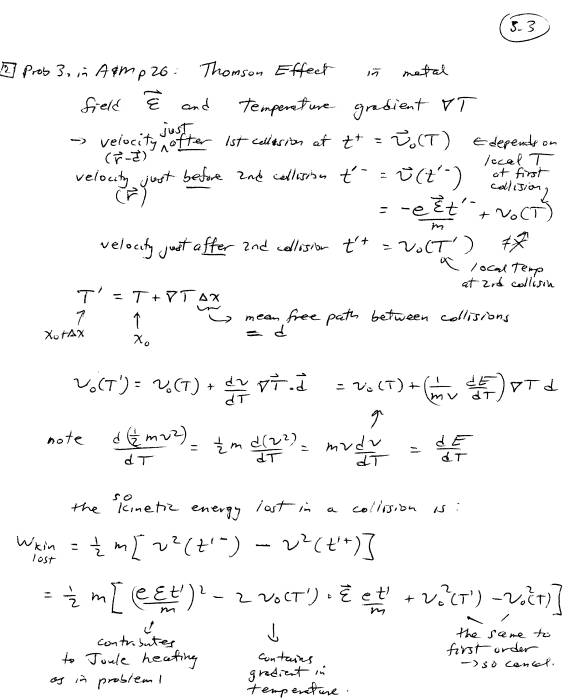 S.3
2 Prob 3, in A&M p 26: Thomson Effect in metal
field ℰ⃗ and temperature gradient ∇T
→ velocity just after 1st collision at t⁺ = v⃗₀(T) ← depends on local T at first collision
(r⃗-d⃗)
velocity just before 2nd collision t'⁻ = v⃗(t'⁻)
(r⃗)
= -eℰ⃗t'⁻/m + v₀(T)
velocity just after 2nd collision t'⁺ = v₀(T')
local temp at 2nd collision
T' = T + ∇T Δx
x₀+Δx x₀ → mean free path between collisions = d
v₀(T') = v₀(T) + dv/dT ∇⃗T·d⃗ = v₀(T) + (1/mv dE/dT) ∇T d
note d(½mv²)/dT = ½m d(v²)/dT = mv dv/dT = dE/dT
so the kinetic energy lost in a collision is:
W kin lost = ½ m[v²(t'⁻) - v²(t'⁺)]
= ½ m[(eℰt'/m)² - 2 v₀(T')·ℰ⃗ et'/m + v₀²(T') - v₀²(T)]
contributes to Joule heating as in problem 1
contains gradient in temperature.
the same to first order → so cancel.